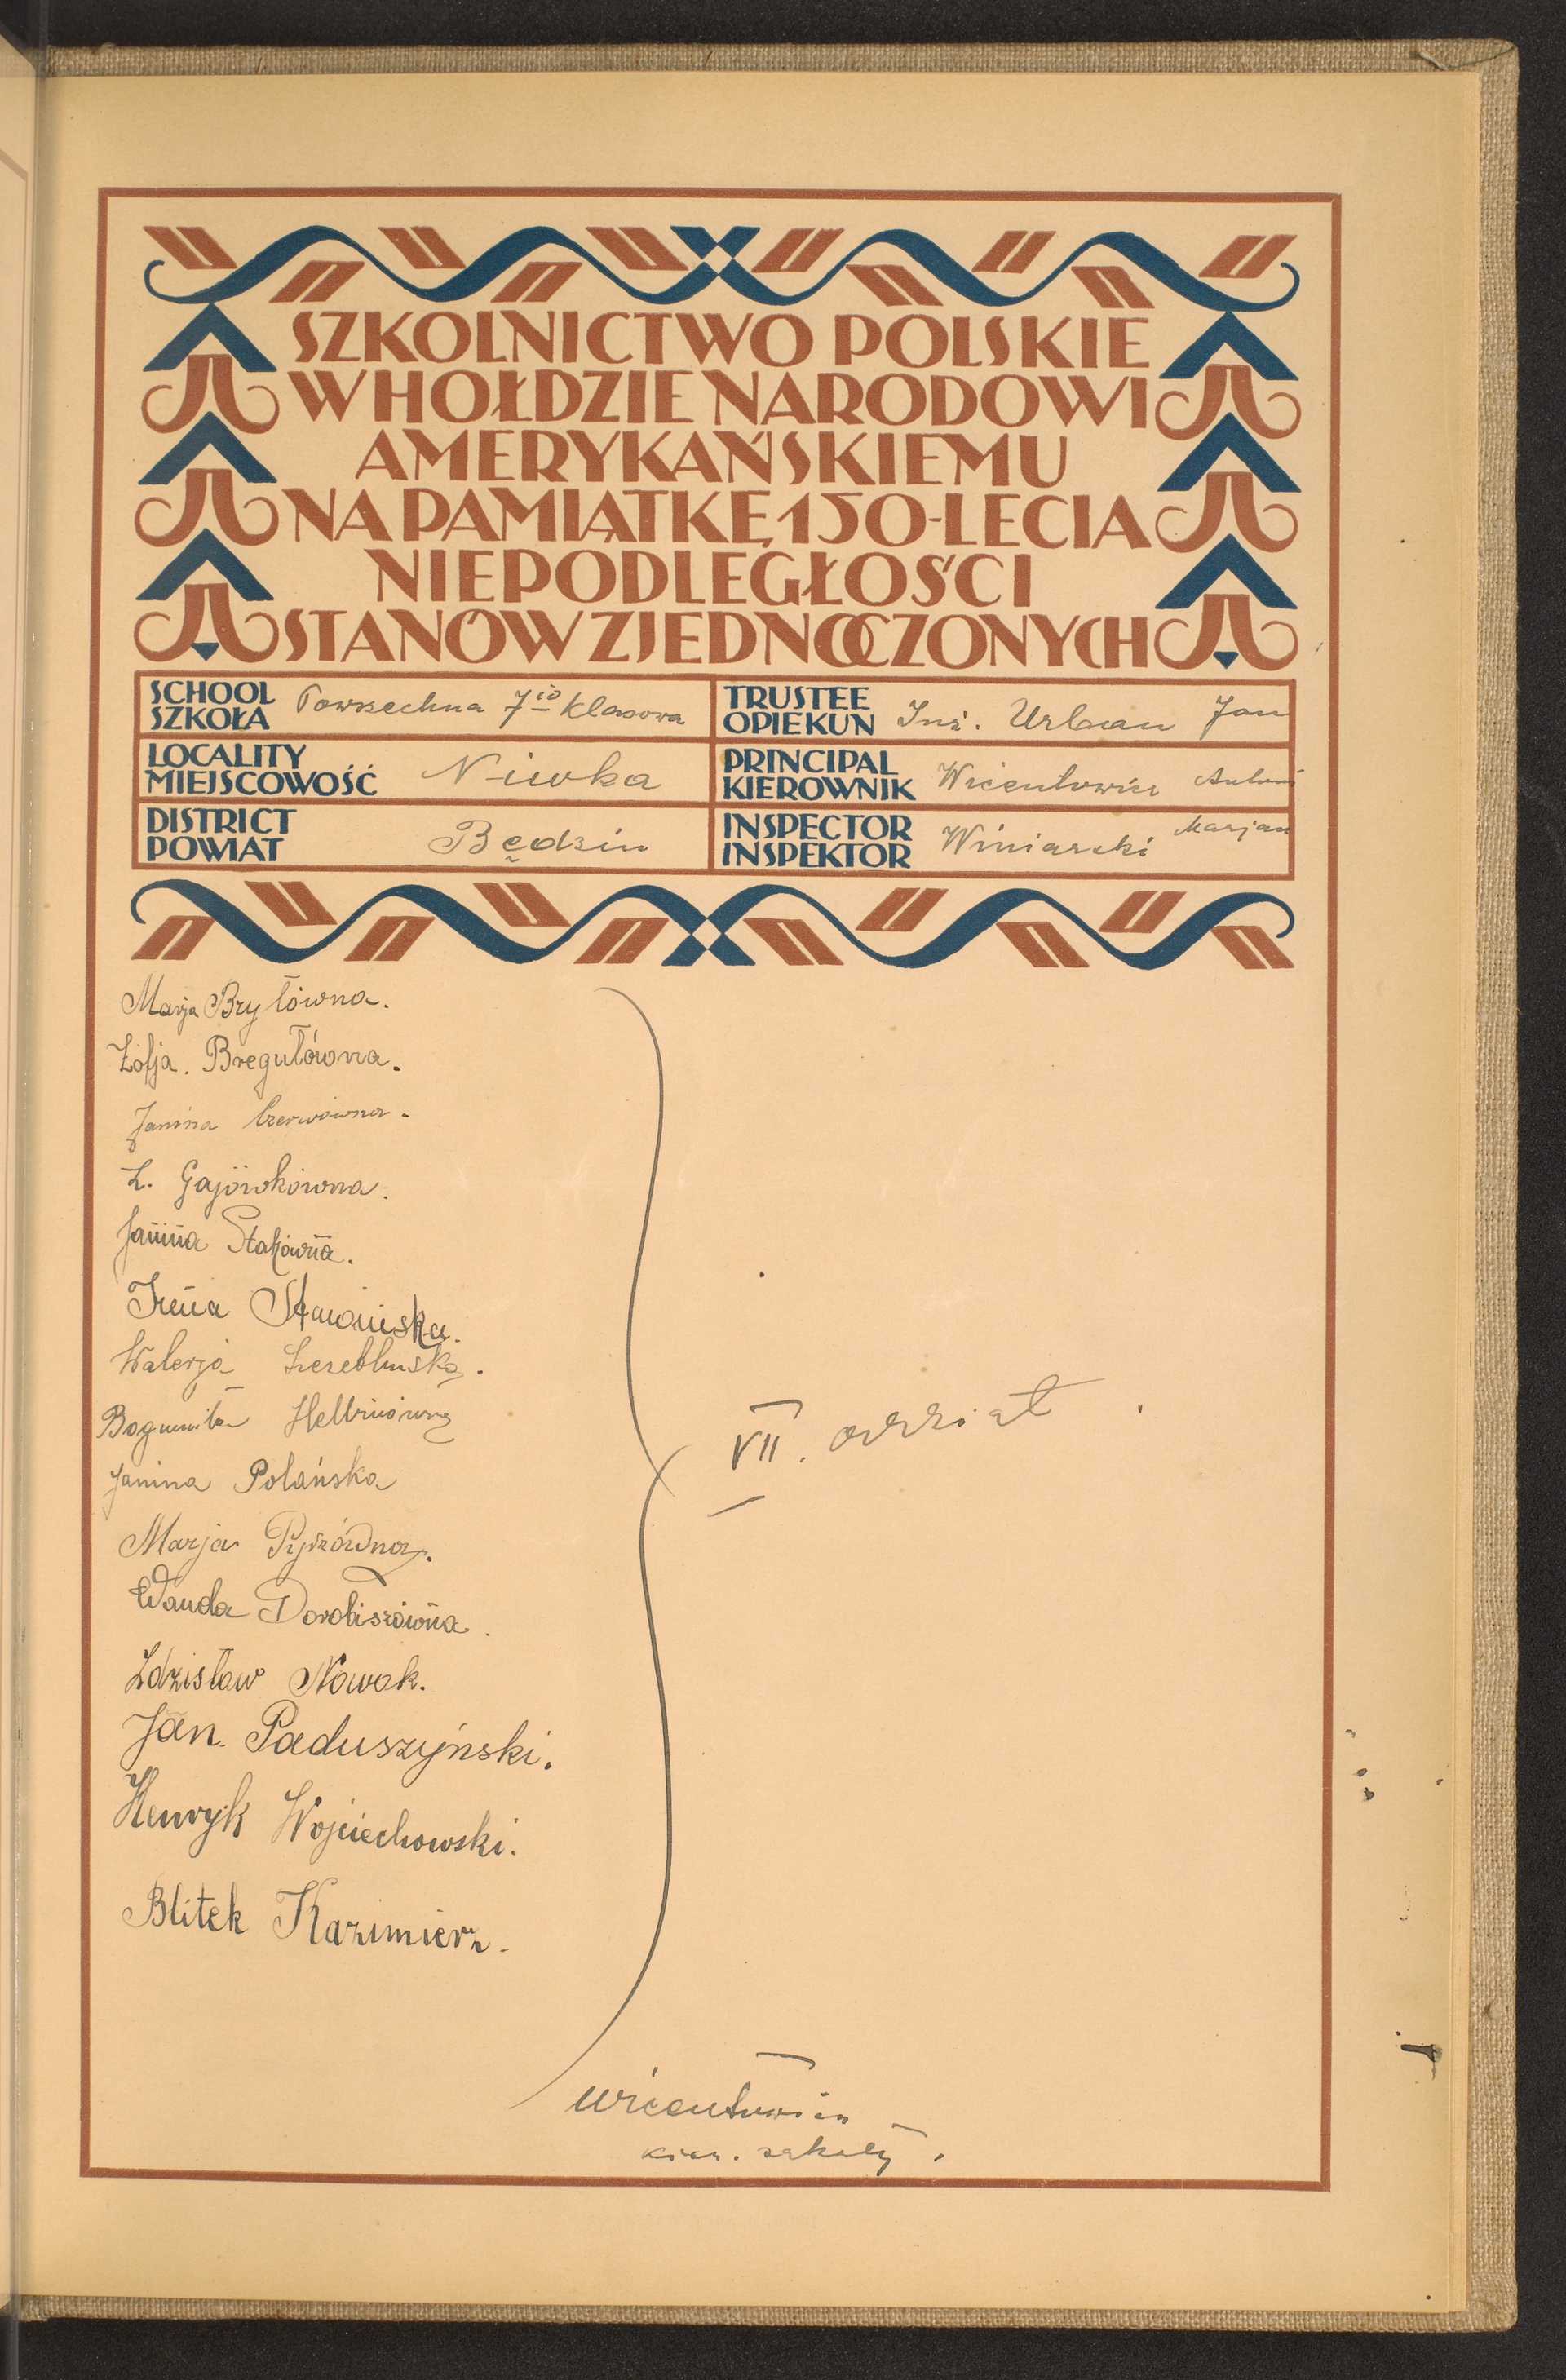 SZKOLNICTWO POLSKIE
W HOŁDZIE NARODOWI
AMERYKAŃSKIEMU
NA PAMIĄTKĘ 150-LECIA
NIEPODLEGŁOŚCI
STANÓW ZJEDNOCZONYCH
SCHOOL
SZKOŁA Powszechna 7io klasowa
TRUSTEE
OPIEKUN Inż. Urban Jan
LOCALITY
MIEJSCOWOŚĆ Niwka
PRINCIPAL
KIEROWNIK Wicentowicz Antoni
DISTRICT
POWIAT Będzin
INSPECTOR
INSPEKTOR Winiarski Marjan
Marja Bryłówna.
Zofja. Bregułówna.
Janina Czerwówna.
Z. Gajówkówna.
Janina
Irena Stawinska.
Walerja
Bogumiła
Janina Polańska
Marja
Wanda Dorobiszówna.
Zdzisław Nowak.
Jan. Paduszyński.
Henryk Wojciechowski.
Blitek Kazimierz.
VII. oddział
Wicentowicz
kier. szkoły.